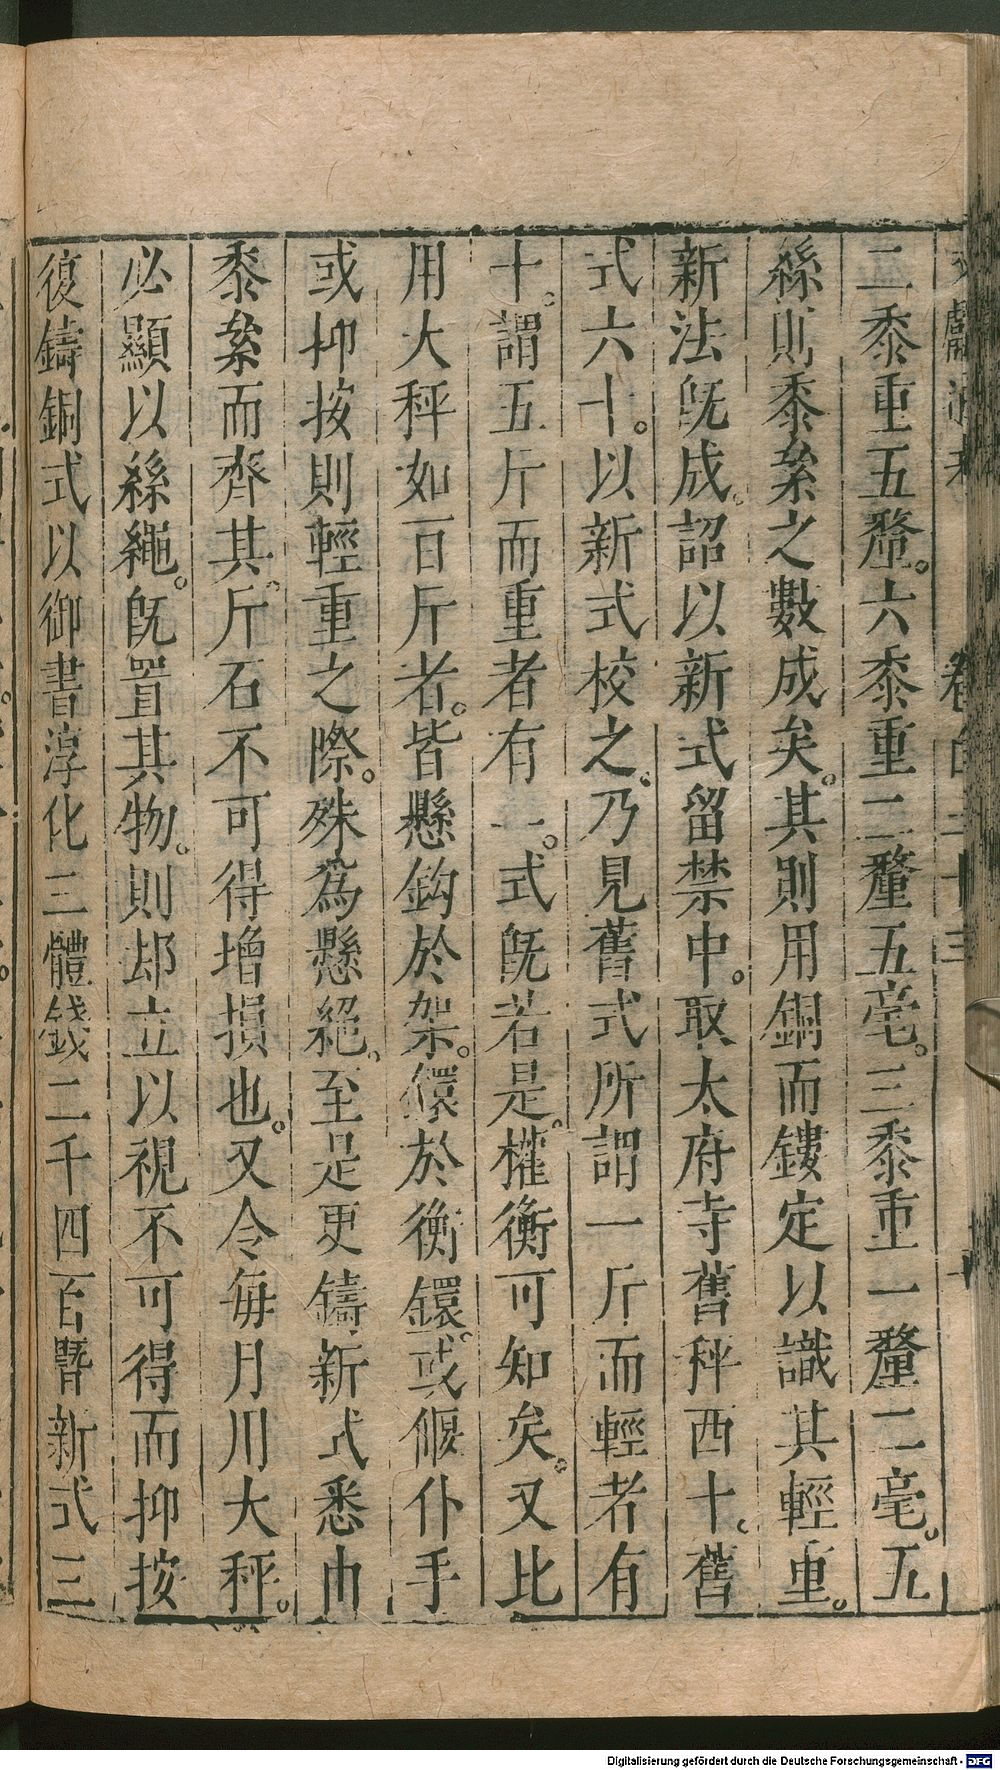 二黍重五釐。六黍重二釐五毫。三黍重一釐二毫。五
絲則黍絫之數成矣。其則用銅而鏤定以識其輕重。
新法旣成。詔以新式留禁中。取太府寺舊秤四十。舊
式六十。以新式校之。乃見舊式所謂一斤而輕者有
十。謂五斤而重者有一。式旣若是。權衡可知矣。又比
用大秤如百斤者。皆懸鈎於架。鐶於衡鐶。或偃仆手
或抑按則輕重之際。殊爲懸絕。至是更鑄新式悉由
黍絫而齊其。斤石不可得增損也。又令每月用大秤。
必顯以絲繩。旣置其物。則却立以視不可得而抑按
復鑄銅式以御書淳化三體錢二千四百暨新式三
Digitalisierung gefördert durch die Deutsche Forschungsgemeinschaft - DFG